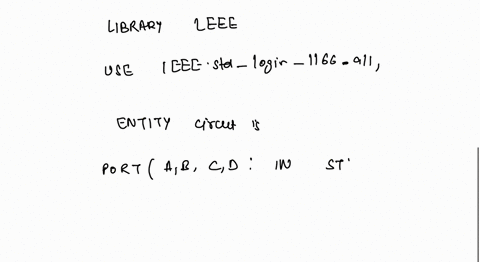 LIBRARY IEEE
USE IEEE.std_login_1166.all,
ENTITY circuit is
PORT( A,B, C,D : IN ST